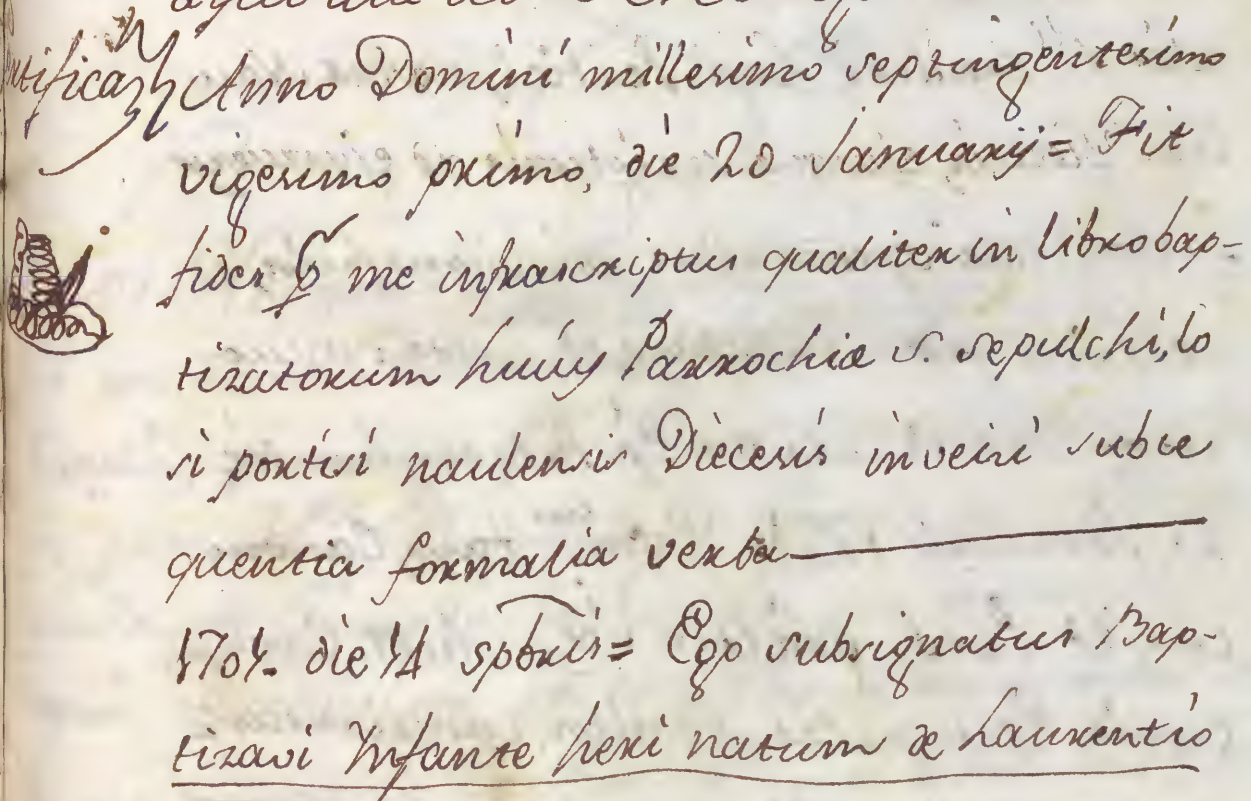 Anno Domini millesimo septingentesimo
vigesimo primo, die 20 Januarij = Fit
fides per me infrascriptus qualiter in libro bap-
tizatorum huius Parrochiæ S. Sepulchi, lo
si portisi naulensis Diecesis inveni subce
quentia formalia verba
1701. die 14 spbris = Ego subsignatus Bap-
tizavi Infante heri natum ex Laurentio